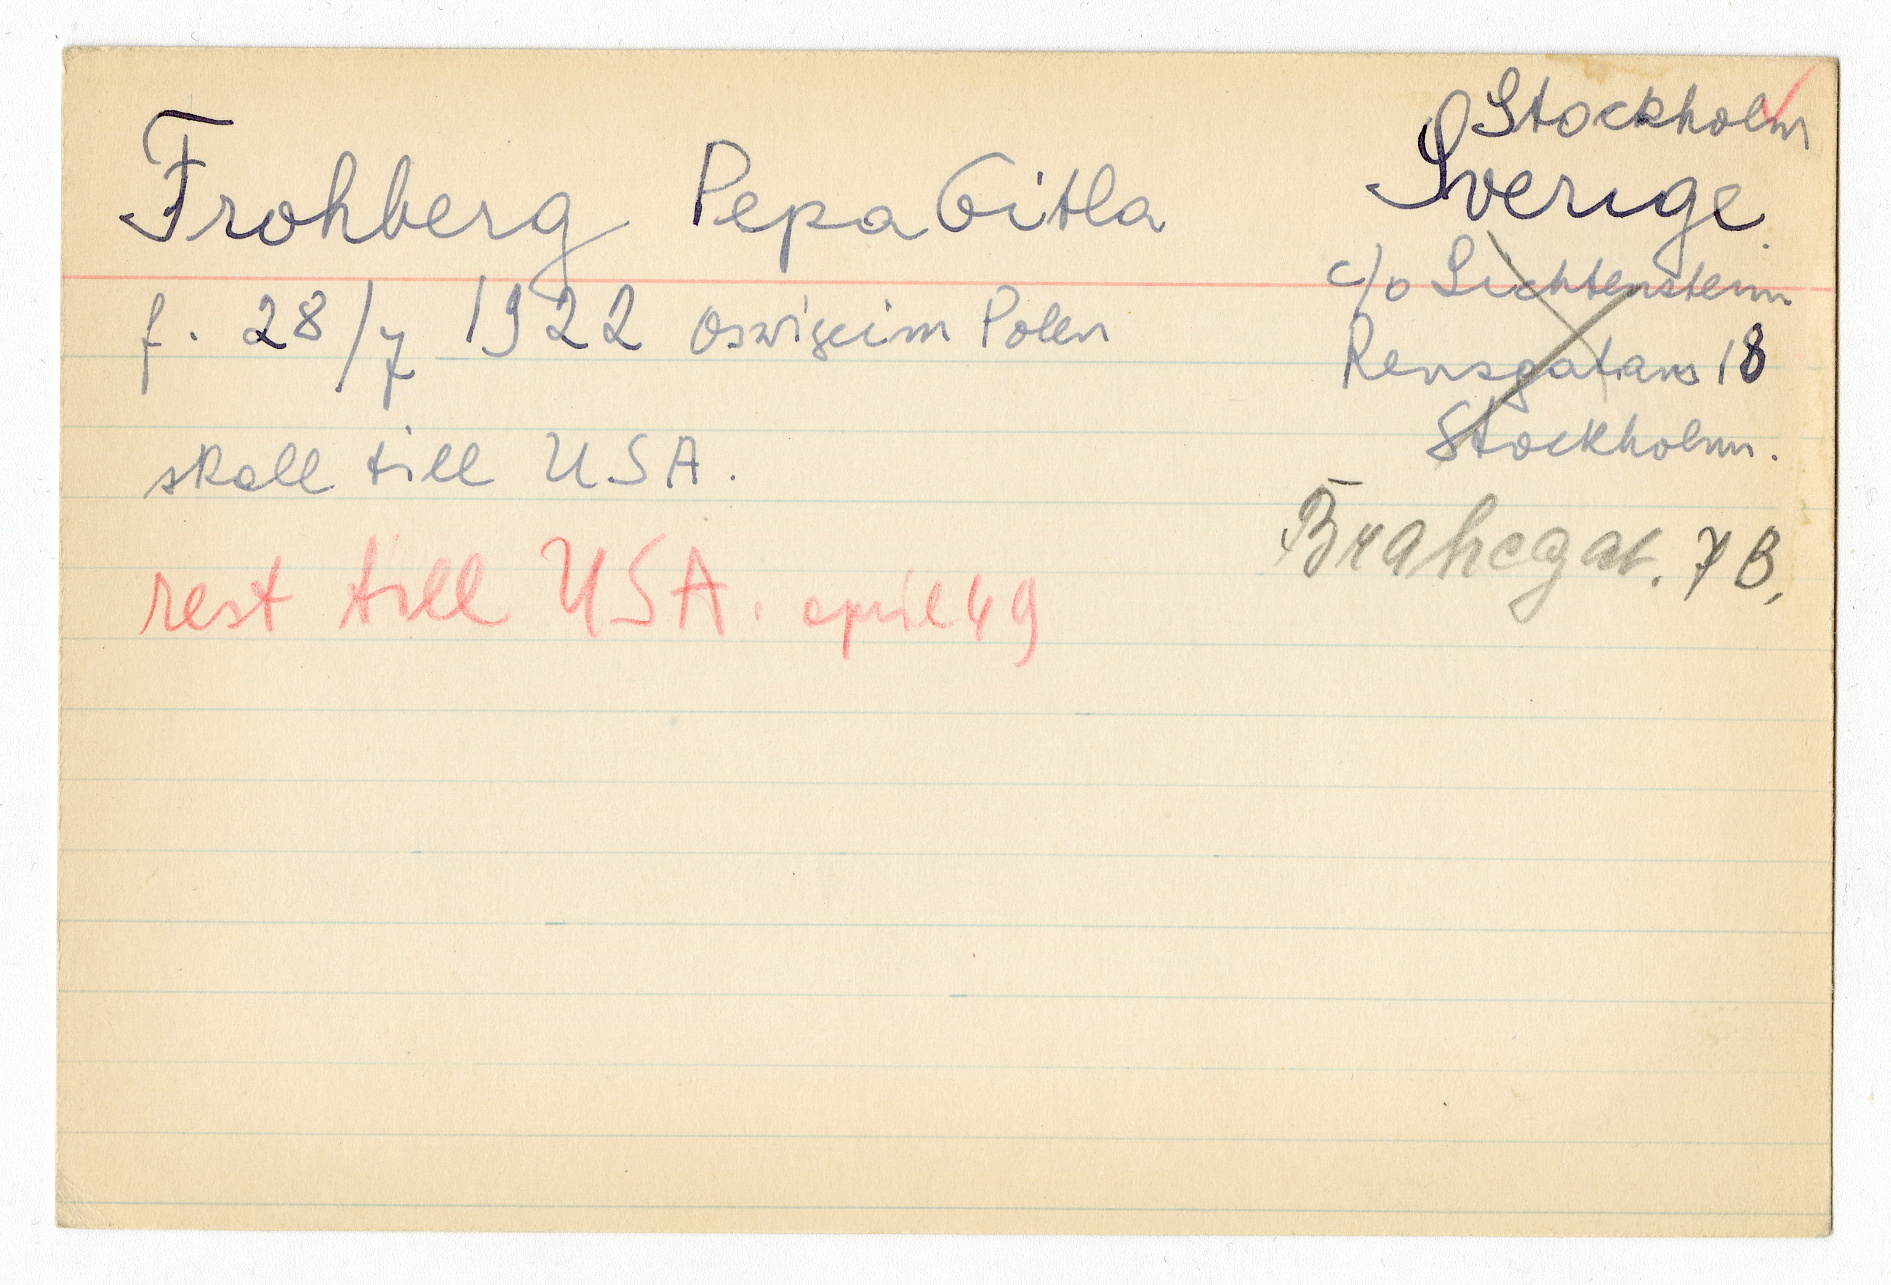 Stockholm
Frohberg Pepa Gitla
Sverige.
f. 28/7 1922 Oswizeim Polen
skall till USA.
rest till USA. april 49
c/o Lichtenstein
Rensgatan 18
Stockholm.
Brahegat. 7B,